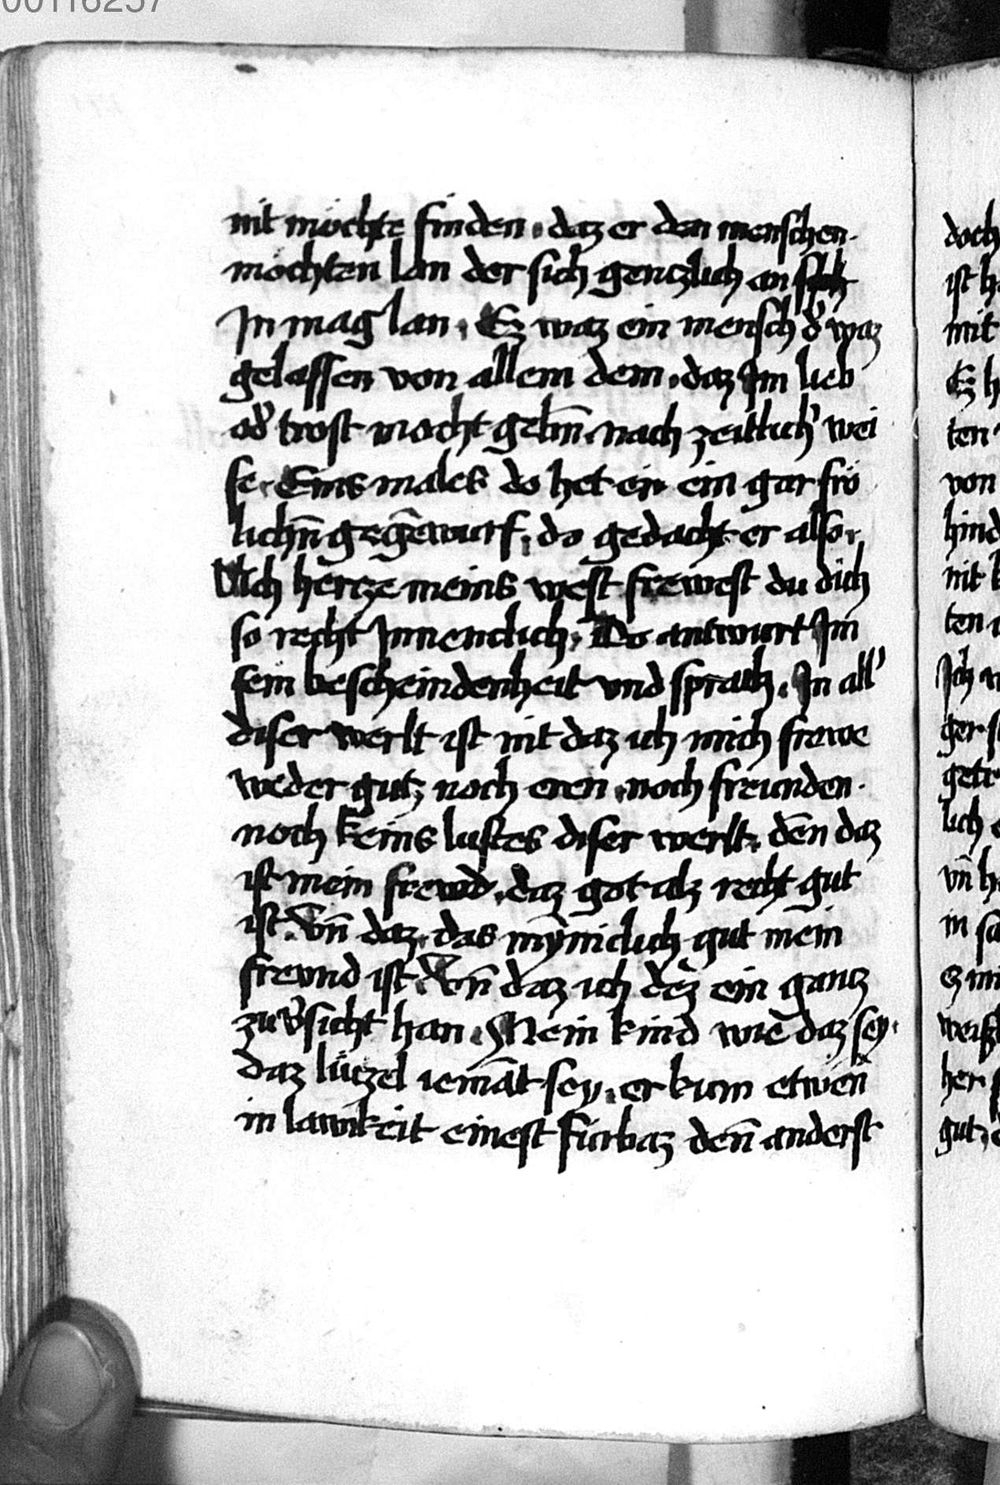 00116237
nit möchte finden. daz er den menschen.
möchten lan der sich genczlich an
Jn mag lan. Ez waz ein mensch dˀ waz
gelassen von allem dem. daz Jm lieb
odˀ trost mocht gebn̄. nach zeitlichˀ wei
se. Eins males do het er ein gar frö
lichn̄ gegēwurf. do gedacht er also.
Ach hercze meins west frewest du dich
so recht Jnnenclich. Do antwurt Jm
sein bescheindenheit vnd sprach. Jn allˀ
diser werlt ist nit daz ich mich frewe
weder gutz noch eren. noch freunden.
noch keins lustes diser werlt. den̄ daz
ist mein frewd. daz got alz recht gut
ist. Vn̄ daz. das mȳniclich gut mein
freund ist. Vn̄ daz ich dez ein gantz
zuvˀsicht han. Mein kind wie daz sey.
daz lüczel iemāt sey. er kum etwen̄
in lawkeit einest fürbaz den̄ anderst
doch
ist h
mit
Ez h
ten
von
hind
nit k
ten
Jch
ger s
getr
lich
vn̄ h
in sa
ez mi
weisz
her s
gut.